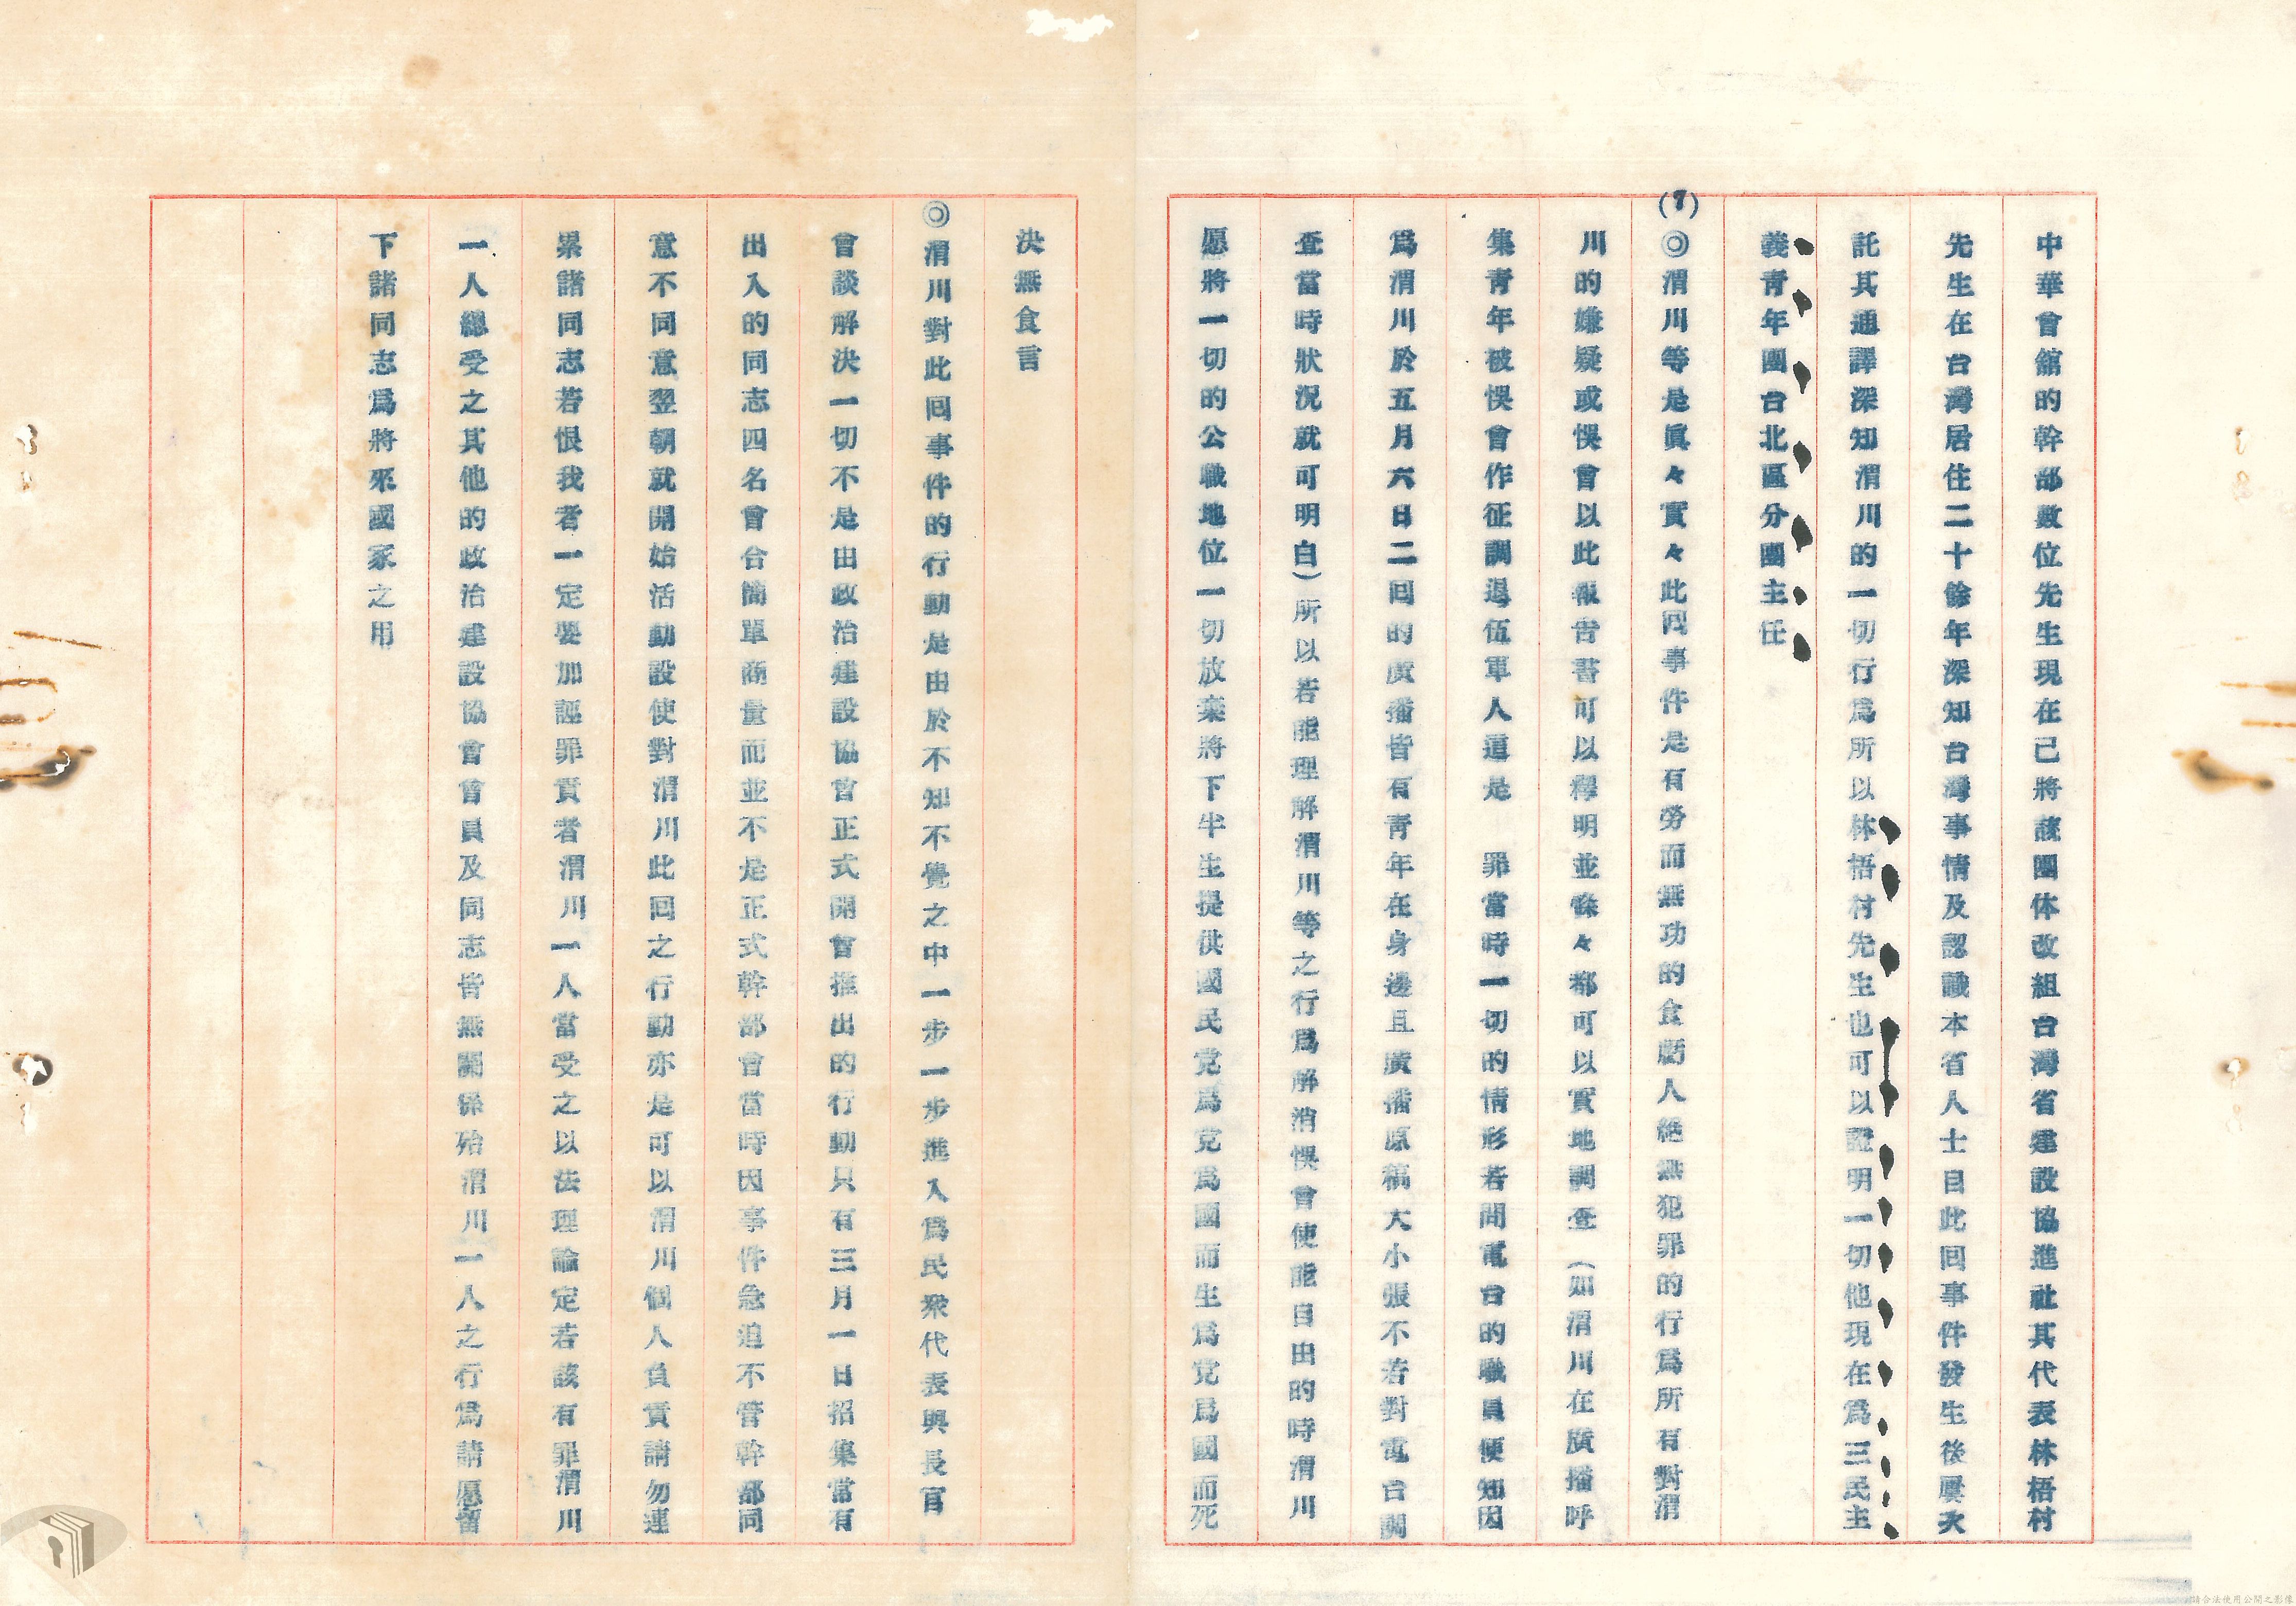 中華會館的幹部數位先生現在已將該團体改組台灣省建設協進社其代表林梧村
先生在台灣居住二十餘年深知台灣事情及認識本省人士目此回事件發生後屢次
託其通譯深知渭川的一切行為所以林梧村先生也可以證明一切他現在為三民主
義青年團台北區分團主任
(7)
◎渭川等是眞々實々此回事件是有勞而無功的食虧人絕無犯罪的行為所有對渭
川的嫌疑或悞會以此報告書可以釋明並條々都可以實地調查（如渭川在廣播呼
集青年被悞會作征調退伍軍人這是　罪當時一切的情形若問電台的職員便知因
為渭川於五月六日二回的廣播皆有青年在身邊且廣播原稿大小張不若對電台調
查當時狀況就可明白）所以若能理解渭川等之行為解消悞會使能自由的時渭川
愿將一切的公職地位一切放棄將下半生提供國民党為党為國而生為党為國而死
決無食言
◎渭川對此回事件的行動是由於不知不覺之中一步一步進入為民衆代表與長官
會談解決一切不是由政治建設協會正式開會推出的行動只有三月一日招集當有
出入的同志四名會合簡單商量而並不是正式幹部會當時因事件急迫不管幹部同
意不同意翌朝就開始活動設使對渭川此回之行動亦是可以渭川個人負責請勿連
累諸同志若恨我者一定要加誣罪責者渭川一人當受之以法理論定若該有罪渭川
一人總受之其他的政治建設協會會員及同志皆無關係殆渭川一人之行為請愿留
下諸同志為將來國家之用
請合法使用公開之影像